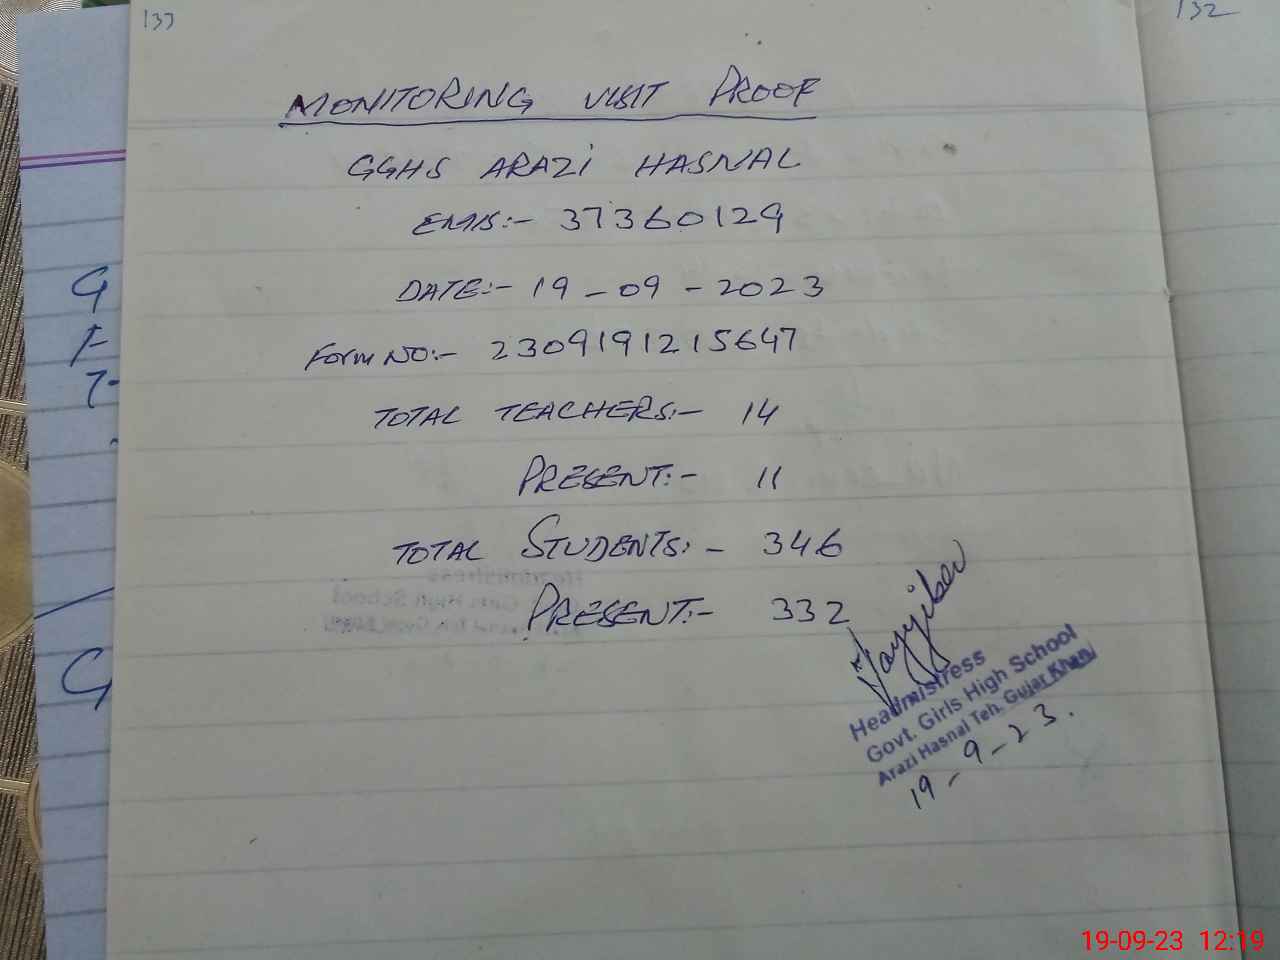 133
132
MONITORING VISIT PROOF
GGHS ARAZI HASNAL
EMIS:- 37360129
DATE:- 19-09-2023
Form NO:- 2309191215647
TOTAL TEACHERS:- 14
PRESENT:- 11
TOTAL STUDENTS:- 346
PRESENT:- 332
Headmistress
Govt. Girls High School
Arazi Hasnal Teh. Gujar Khan
19-9-23.
G
F
T
G
19-09-23 12:19